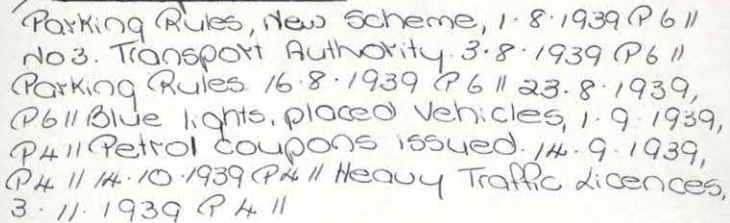 Parking Rules, New Scheme, 1.8.1939 P6 //
No3. Transport Authority. 3.8.1939 P6 //
Parking Rules. 16.8.1939 P6 // 23.8.1939,
P6 // Blue lights, placed Vehicles, 1.9.1939,
P4 // Petrol coupons issued. 14.9.1939,
P4 // 14.10.1939 P4 // Heavy Traffic Licences,
3.11.1939 P4 //